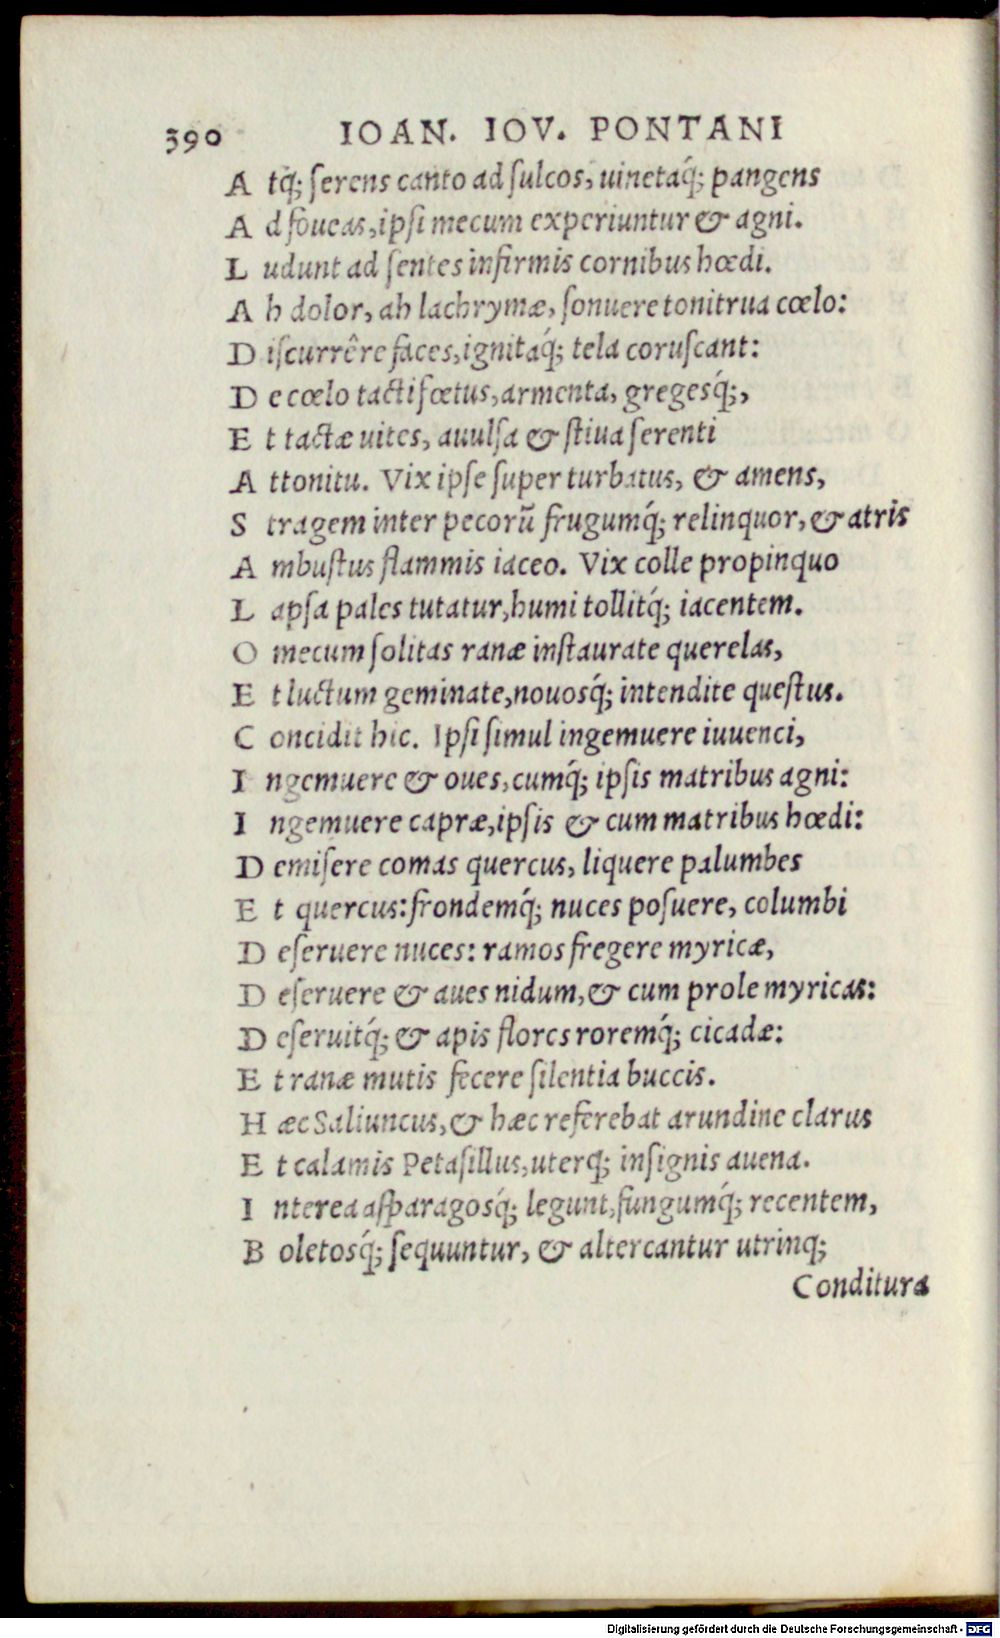 390 IOAN. IOV. PONTANI
A tq́; ſerens canto ad ſulcos, uinetaq́; pangens
A d foueas, ipſi mecum experiuntur & agni.
L udunt ad ſentes infirmis cornibus hœdi.
A h dolor, ah lachrymæ, ſonuere tonitrua cœlo:
D iſcurrêre faces, ignitaq́; tela coruſcant:
D e cœlo tacti fœtus, armenta, gregesq́;,
E t tactæ uites, auulſa & ſtiua ſerenti
A ttonitu. Vix ipſe super turbatus, & amens,
S tragem inter pecorū frugumq́; relinquor, & atris
A mbuſtus flammis iaceo. Vix colle propinquo
L apſa pales tutatur, humi tollitq́; iacentem.
O mecum ſolitas ranæ inſtaurate querelas,
E t luctum geminate, nouosq́; intendite queſtus.
C oncidit hic. Ipſi ſimul ingemuere iuuenci,
I ngemuere & oues, cumq́; ipſis matribus agni:
I ngemuere capræ, ipſis & cum matribus hœdi:
D emiſere comas quercus, liquere palumbes
E t quercus: frondemq́; nuces poſuere, columbi
D eſeruere nuces: ramos fregere myricæ,
D eſeruere & aues nidum, & cum prole myricas:
D eſeruitq́; & apis flores roremq́; cicadæ:
E t ranæ mutis fecere ſilentia buccis.
H æc Saliuncus, & hæc referebat arundine clarus
E t calamis Petaſillus, uterq; inſignis auena.
I nterea aſparagosq́; legunt, fungumq́; recentem,
B oletosq́; ſequuntur, & altercantur utrinq;
Conditura
Digitalisierung gefördert durch die Deutsche Forschungsgemeinschaft - DFG